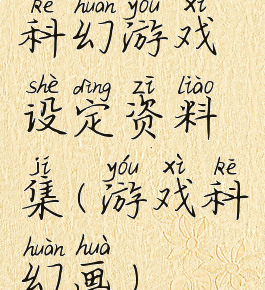 kē huàn yóu xì
科幻游戏
shè dìng zī liào
设定资料
jí yóu xì kē
集(游戏科
huàn huà
幻画)